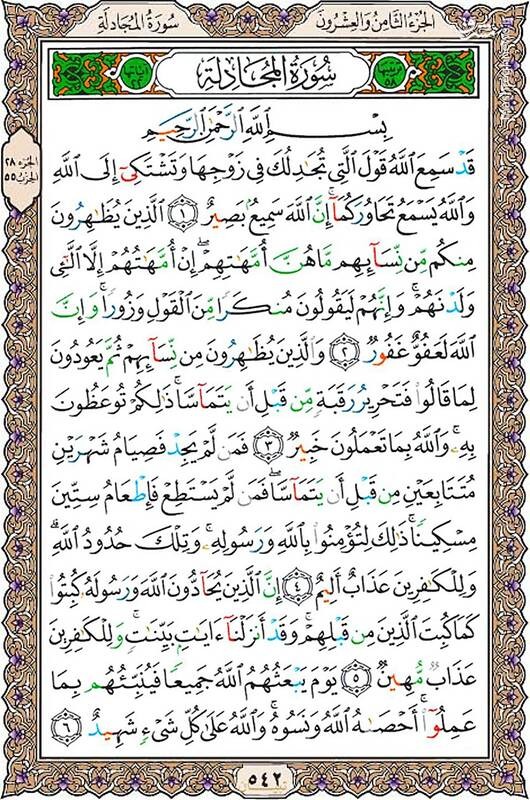 الجزء الثامن والعشرون
سورة المجادلة
سُورَةُ المُجَادلة
الجزء ٢٨
الحزب ٥٥
بِسْمِ ٱللَّهِ ٱلرَّحْمَٰنِ ٱلرَّحِيمِ
قَدْ سَمِعَ ٱللَّهُ قَوْلَ ٱلَّتِى تُجَٰدِلُكَ فِى زَوْجِهَا وَتَشْتَكِىٓ إِلَى ٱللَّهِ
وَٱللَّهُ يَسْمَعُ تَحَاوُرَكُمَآ ۚ إِنَّ ٱللَّهَ سَمِيعٌۢ بَصِيرٌ ١ ٱلَّذِينَ يُظَٰهِرُونَ
مِنكُم مِّن نِّسَآئِهِم مَّا هُنَّ أُمَّهَٰتِهِمْ ۖ إِنْ أُمَّهَٰتُهُمْ إِلَّا ٱلَّٰٓـِٔى
وَلَدْنَهُمْ ۚ وَإِنَّهُمْ لَيَقُولُونَ مُنكَرًا مِّنَ ٱلْقَوْلِ وَزُورًا ۚ وَإِنَّ
ٱللَّهَ لَعَفُوٌّ غَفُورٌ ٢ وَٱلَّذِينَ يُظَٰهِرُونَ مِن نِّسَآئِهِمْ ثُمَّ يَعُودُونَ
لِمَا قَالُوا۟ فَتَحْرِيرُ رَقَبَةٍ مِّن قَبْلِ أَن يَتَمَآسَّا ۚ ذَٰلِكُمْ تُوعَظُونَ
بِهِۦ ۚ وَٱللَّهُ بِمَا تَعْمَلُونَ خَبِيرٌ ٣ فَمَن لَّمْ يَجِدْ فَصِيَامُ شَهْرَيْنِ
مُتَتَابِعَيْنِ مِن قَبْلِ أَن يَتَمَآسَّا ۖ فَمَن لَّمْ يَسْتَطِعْ فَإِطْعَامُ سِتِّينَ
مِسْكِينًا ۚ ذَٰلِكَ لِتُؤْمِنُوا۟ بِٱللَّهِ وَرَسُولِهِۦ ۚ وَتِلْكَ حُدُودُ ٱللَّهِ ۗ
وَلِلْكَٰفِرِينَ عَذَابٌ أَلِيمٌ ٤ إِنَّ ٱلَّذِينَ يُحَآدُّونَ ٱللَّهَ وَرَسُولَهُۥ كُبِتُوا۟
كَمَا كُبِتَ ٱلَّذِينَ مِن قَبْلِهِمْ ۚ وَقَدْ أَنزَلْنَآ ءَايَٰتٍۭ بَيِّنَٰتٍ ۚ وَلِلْكَٰفِرِينَ
عَذَابٌ مُّهِينٌ ٥ يَوْمَ يَبْعَثُهُمُ ٱللَّهُ جَمِيعًا فَيُنَبِّئُهُم بِمَا
عَمِلُوٓا۟ ۚ أَحْصَىٰهُ ٱللَّهُ وَنَسُوهُ ۚ وَٱللَّهُ عَلَىٰ كُلِّ شَىْءٍ شَهِيدٌ ٦
٥٤٢